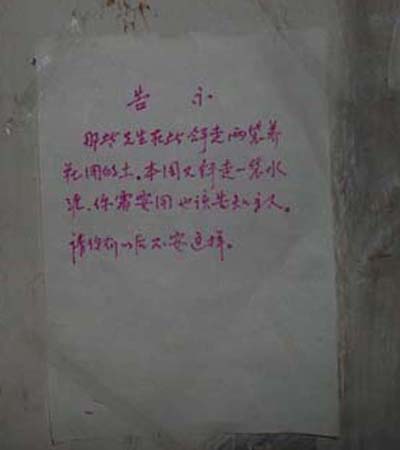 告示
那些先生在此走两袋养
花用的土。本周又走一袋水
泥、你需要用也该告知主人。
请你们以后不要这样。